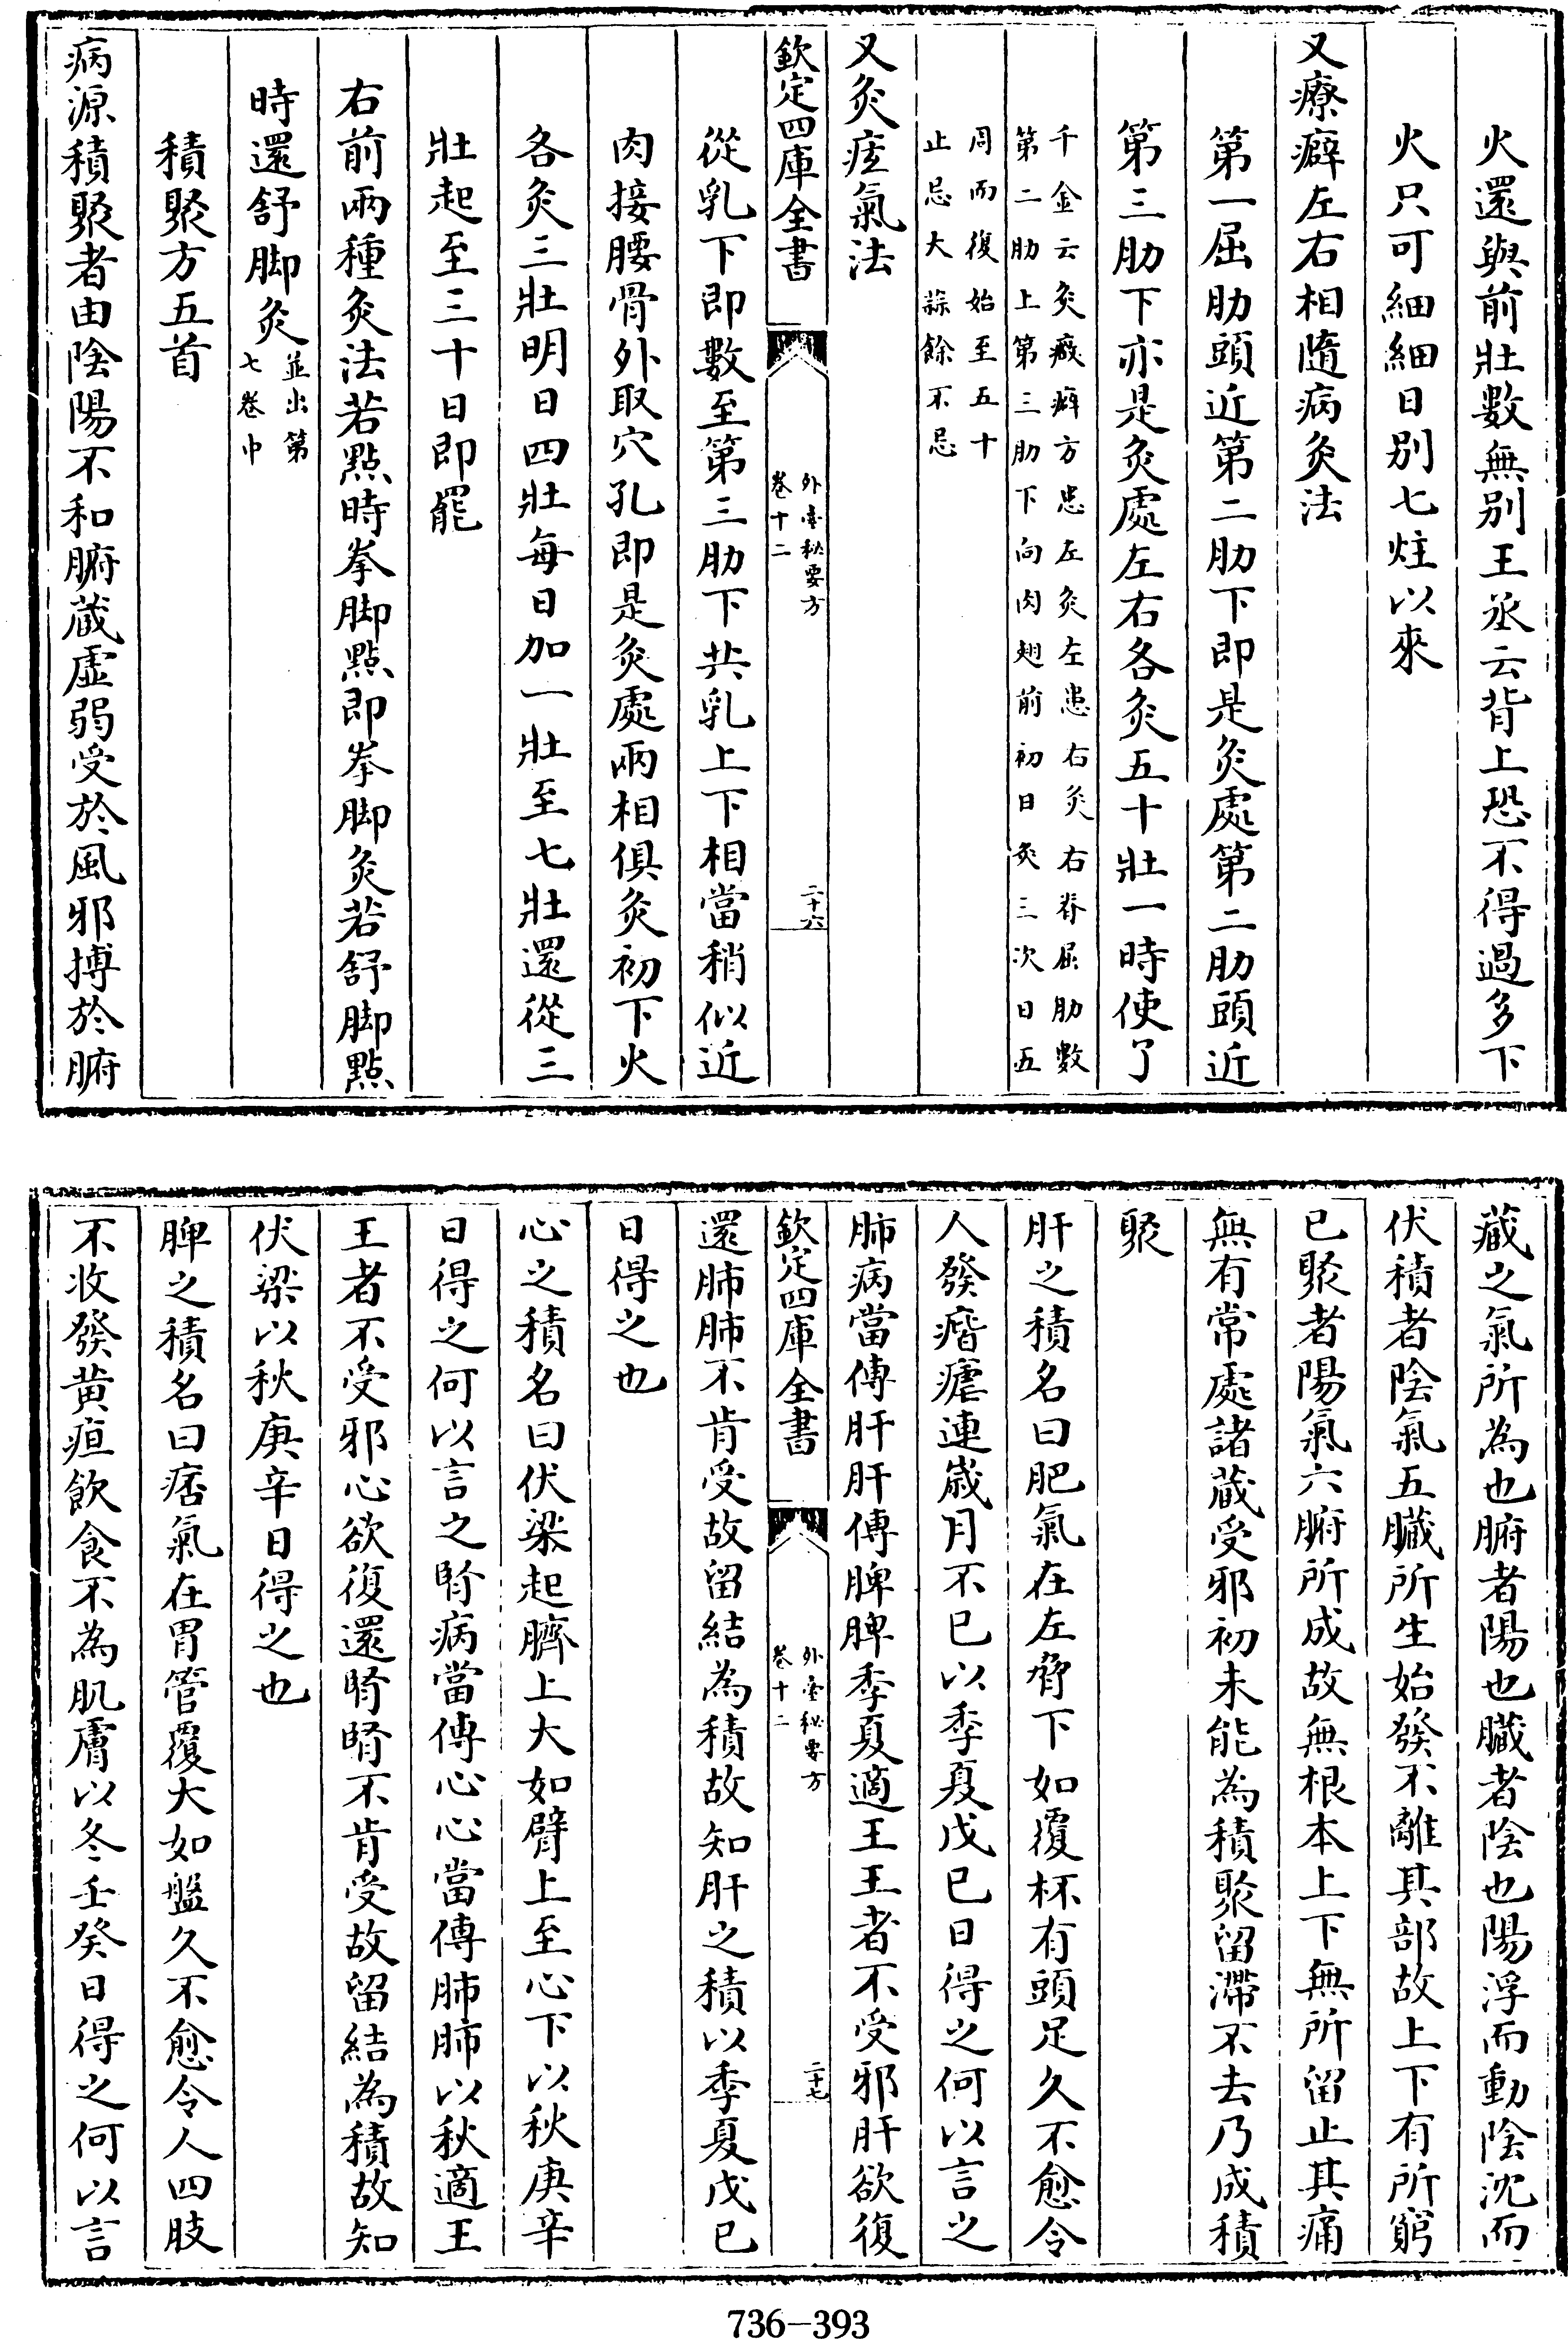 火還與前壯數無别王丞云背上恐不得過多下
火只可細細日别七炷以來
又療癖左右相隨病灸法
第一屈肋頭近第二肋下即是灸處第二肋頭近
第三肋下亦是灸處左右各灸五十壯一時使了
千金云灸癥癖方患左灸左患右灸右脊屈肋數
第二肋上第三肋下向肉翅前初日灸三次日五
周而復始至五十
止忌大蒜餘不忌
又灸痃氣法
欽定四庫全書
外臺秘要方
卷十二
二十六
從乳下即數至第三肋下共乳上下相當稍似近
肉接腰骨外取穴孔即是灸處兩相俱灸初下火
各灸三壯明日四壯每日加一壯至七壯還從三
壯起至三十日即罷
右前兩種灸法若點時拳脚點即拳脚灸若舒脚點
時還舒脚灸
並出第
七卷中
積聚方五首
病源積聚者由陰陽不和腑蔵虛弱受於風邪搏於腑
藏之氣所為也腑者陽也臟者陰也陽浮而動陰沈而
伏積者陰氣五臟所生始發不離其部故上下有所窮
已聚者陽氣六腑所成故無根本上下無所留止其痛
無有常處諸蔵受邪初未能為積聚留滯不去乃成積
聚
肝之積名曰肥氣在左脅下如覆杯有頭足久不愈令
人發㾬瘧連嵗月不已以季夏戊己日得之何以言之
肺病當傳肝肝傳脾脾季夏適王王者不受邪肝欲復
欽定四庫全書
外臺秘要方
卷十二
二十七
還肺肺不肯受故留結為積故知肝之積以季夏戊己
日得之也
心之積名曰伏梁起臍上大如臂上至心下以秋庚辛
日得之何以言之腎病當傳心心當傳肺肺以秋適王
王者不受邪心欲復還腎腎不肯受故留結為積故知
伏梁以秋庚辛日得之也
脾之積名曰痞氣在胃管覆大如盤久不愈令人四肢
不收發黄疸飲食不為肌膚以冬壬癸日得之何以言
736-393